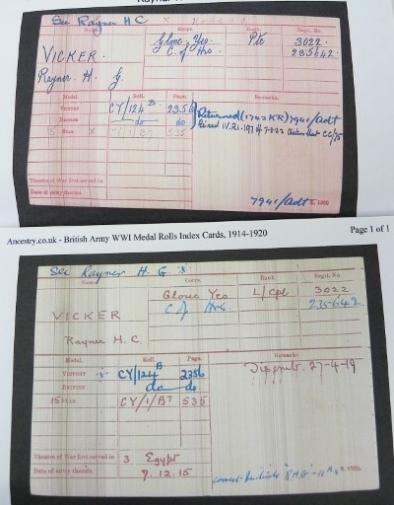 Rayner
See Rayner H C
Corps. Rank. Regtl. No.
VICKER. Glouc. Yeo. Pte 3022.
C. of Hrs. 235642.
Rayner. H. G.
Medal. Roll. Page. Remarks.
VICTORY CY/124 B 2356
BRITISH do do
15 STAR 535
Theatre of War first served in
Date of entry therein
7941/Adt
Ancestry.co.uk - British Army WWI Medal Rolls Index Cards, 1914-1920 Page 1 of 1
See Rayner H. G.
Name. Corps. Rank. Regtl. No.
Glouc Yeo L/Cpl 3022
VICKER C of Hrs. 235642
Rayner H. C.
Medal. Roll. Page. Remarks
VICTORY CY/124 B 2356 27-4-19
BRITISH do do
15 STAR CY/1/B 535
Theatre of War first served in 3 Egypt
Date of entry therein 9.12.15